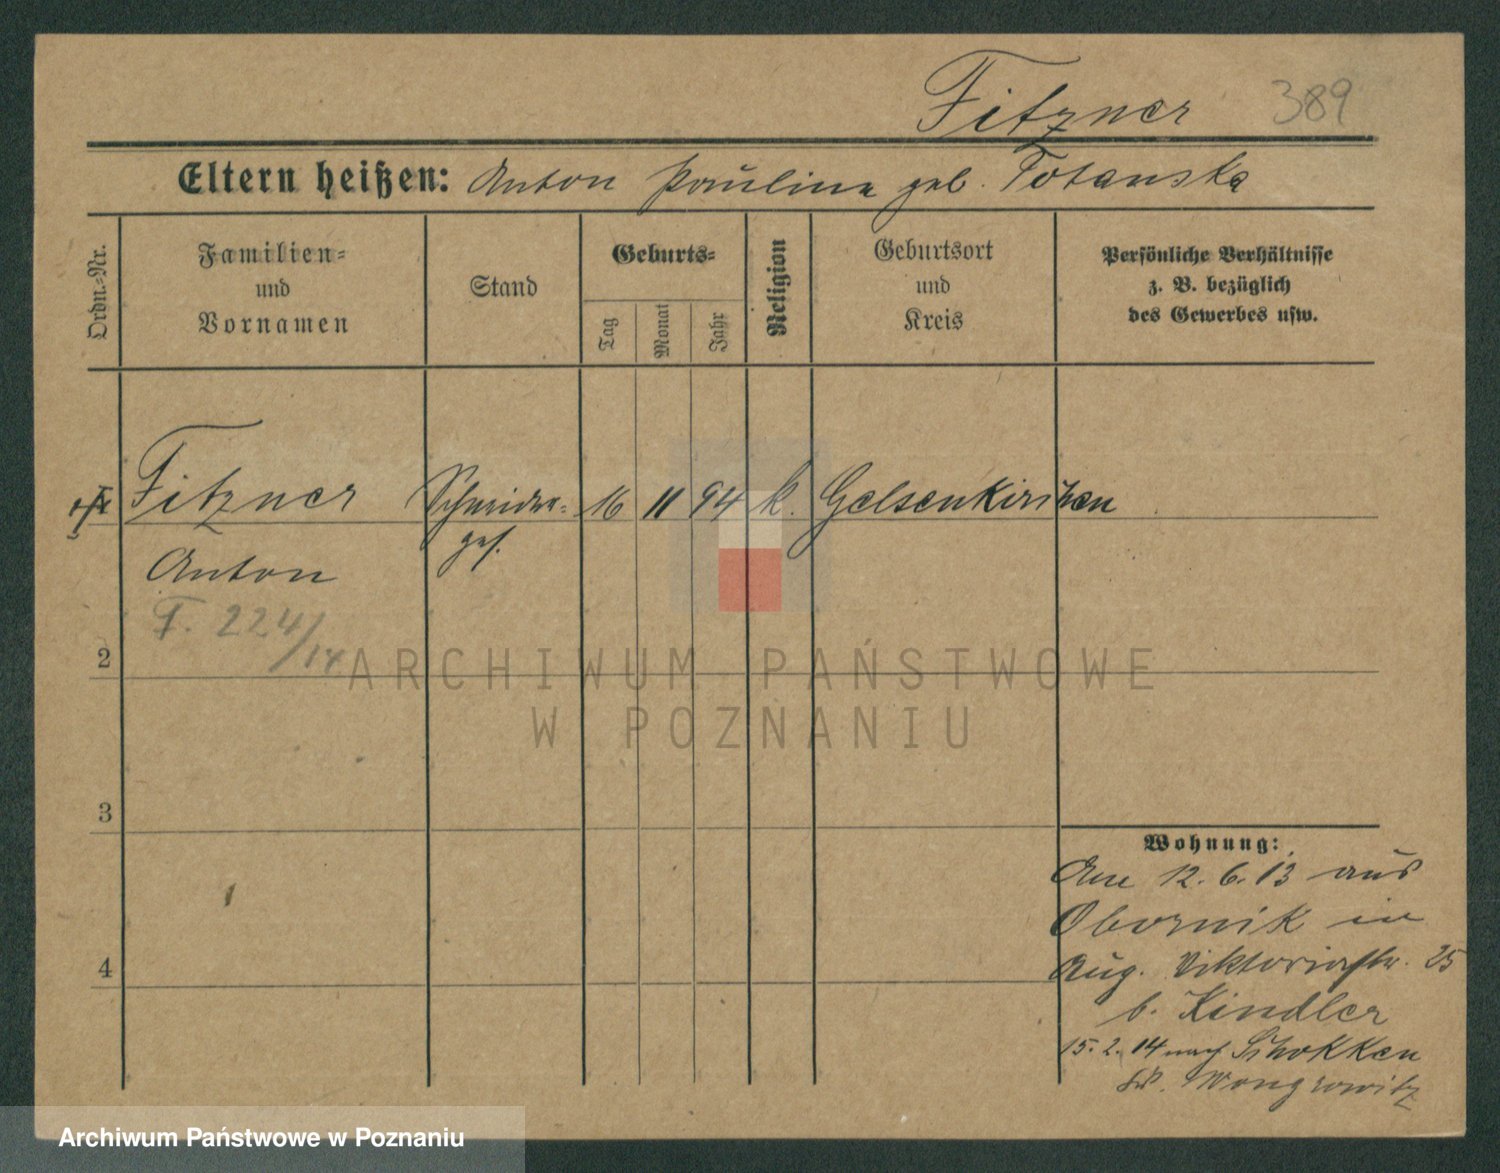 Fitzner 389
Eltern heißen: Anton Paulina geb. Totanska
Ordn.-Nr.
Familien-
und
Vornamen
Stand
Geburts-
Tag
Monat
Jahr
Religion
Geburtsort
und
Kreis
Persönliche Verhältnisse
z. B. bezüglich
des Gewerbes usw.
Fitzner Schneider- 16 11 94 k. Gelsenkirchen
ges.
Anton
F. 224/14
2
3
4
Wohnung:
Am 12. 6. 13 aus
Obornik in
Aug. Viktoriastr. 25
b. Kindler
15. 2. 14 nach Schokken
Wongrowitz
ARCHIWUM PAŃSTWOWE
W POZNANIU
Archiwum Państwowe w Poznaniu